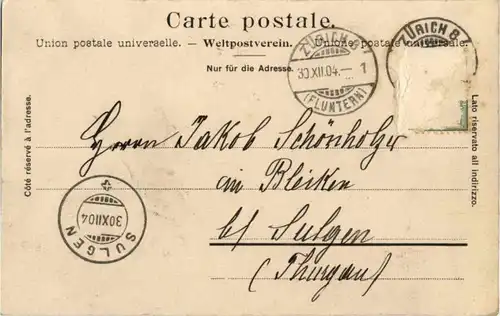 Carte postale.
Union postale universelle. — Weltpostverein. — Unione postale universale.
Nur für die Adresse.
Côté réservé à l'adresse.
Lato riservato all indirizzo.
ZÜRICH
30.XII.04.— 1
(FLUNTERN)
ZÜRICH 8
Herrn Jakob Schönholzer
in Bleiken
b/ Sulgen
(Thurgau)
30XII04
SULGEN